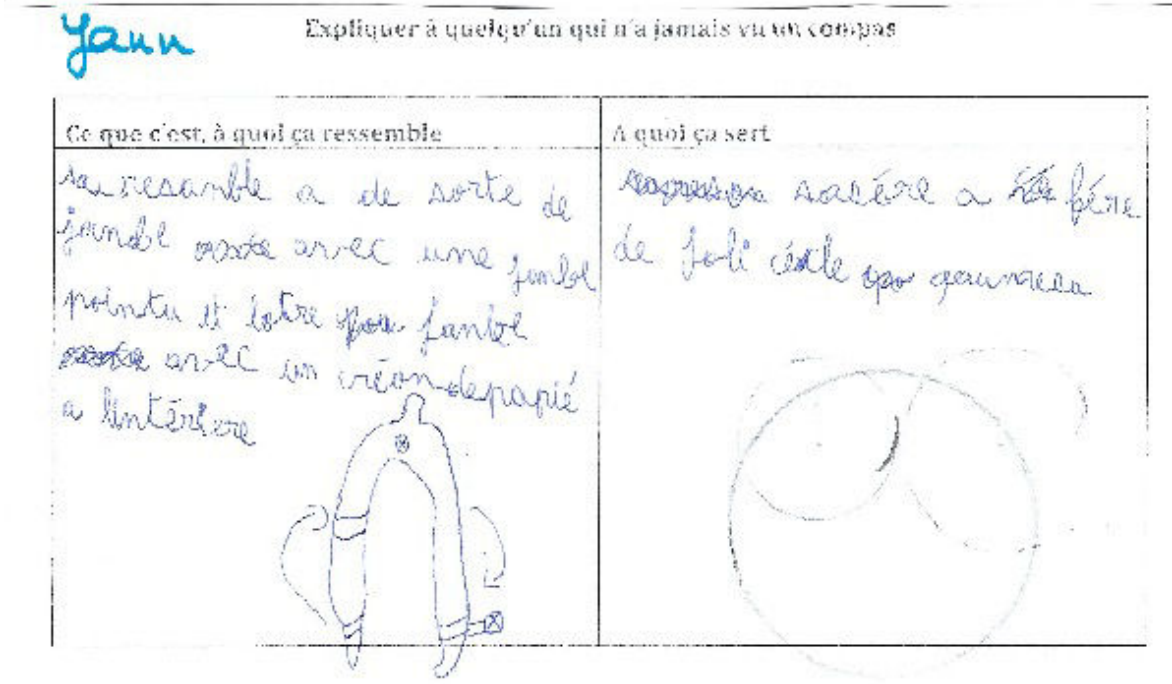 Yann
Expliquer à quelqu'un qui n'a jamais vu un compas
Ce que c'est, à quoi ça ressemble
sa resanble a de sorte de
janbe avec une janbe
pointu et lotre janbe
avec un créon depapié
a lintériere
A quoi ça sert
sacére a fére
de joli cércle